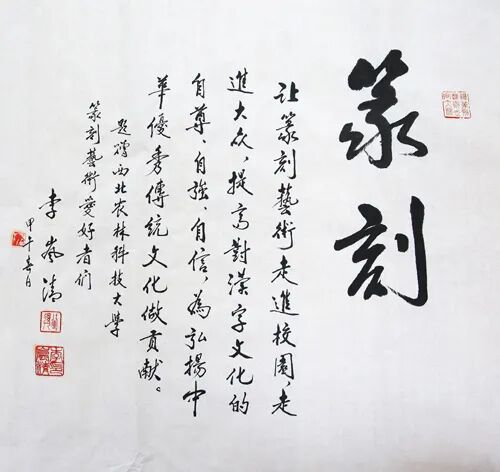 篆刻
让篆刻藝術走進校園，走
進大众，提高對漢字文化的
自尊、自強、自信，為弘揚中
華優秀傳統文化做貢献。
題贈西北农林科技大學
篆刻藝術愛好者們
李岚清
甲午春月